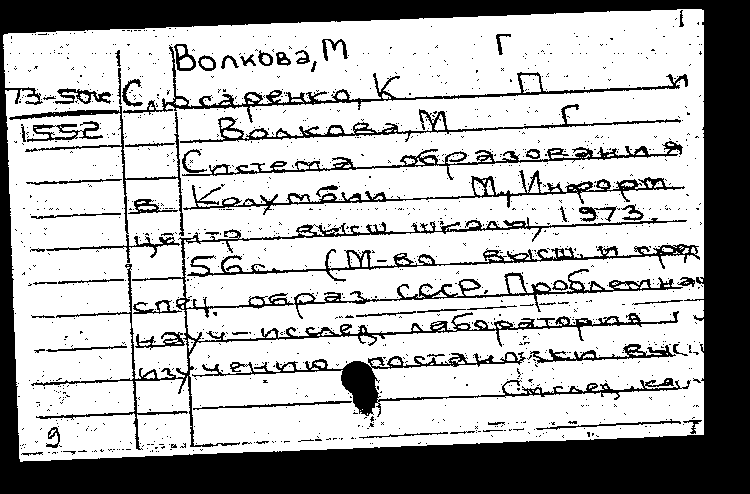 Волкова, М Г
73-50к Слюсаренко, К П и
1552 Волкова, М Г
Система образования
в Колумбии М., Информ
центр высш школы, 1973.
56 с. (М-во высш. и сред
спец. образ. СССР. Проблемная
науч-исслед. лаборатория
изучению постановки высш
См след. кар
9